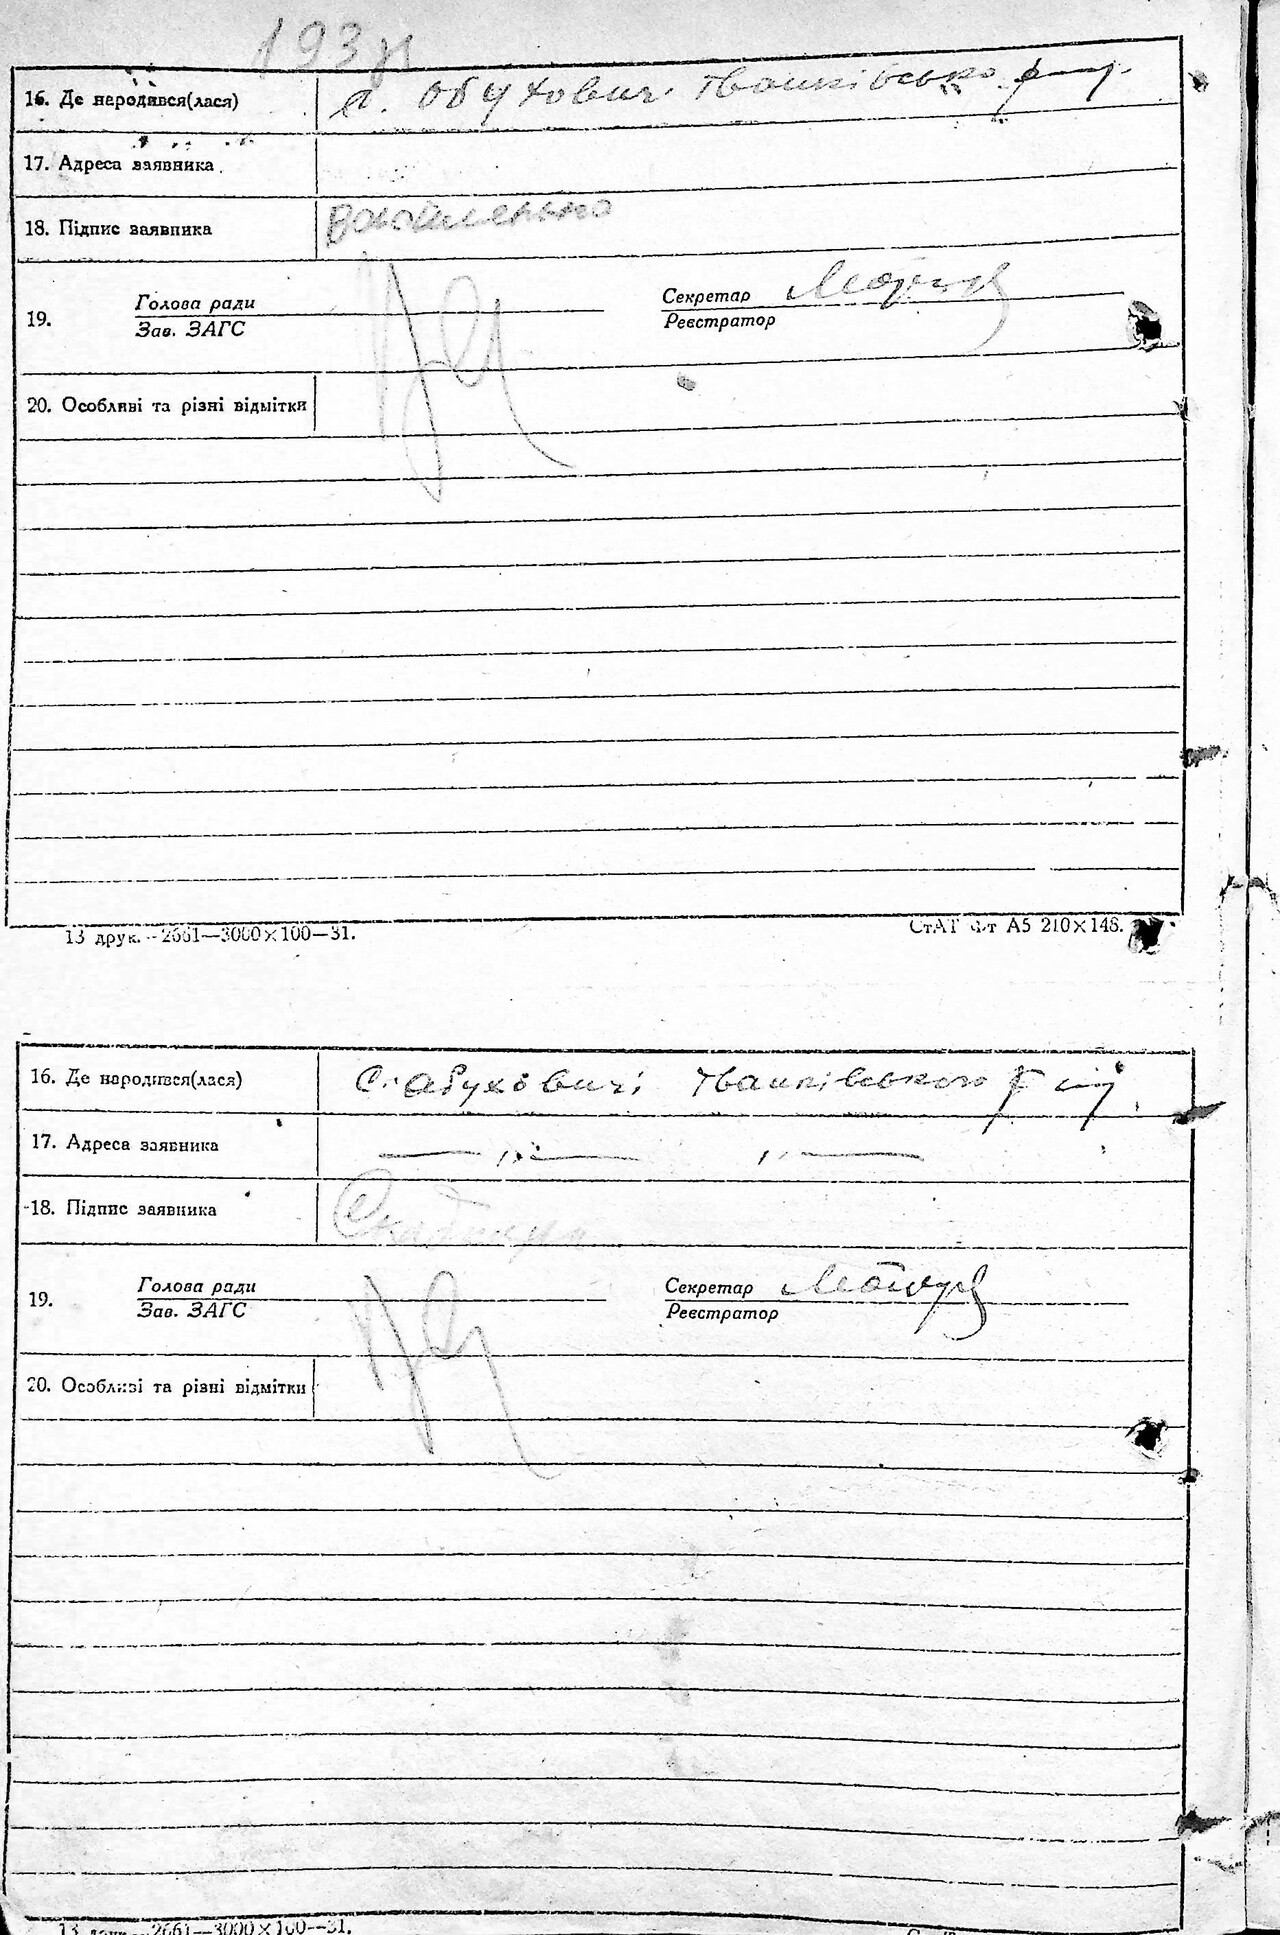 16. Де народився(лася) с. Обуховичі Іванківського р-ну
17. Адреса заявника
18. Підпис заявника
19. Голова ради Секретар
Зав. ЗАГС Реєстратор
20. Особливі та різні відмітки
13 друк. - 2661—3000×100—31. СтАТ ф-т А5 210×148.
16. Де народився(лася) с. Абуховичі Іванківського р-ну
17. Адреса заявника — „ — „ —
18. Підпис заявника
19. Голова ради Секретар
Зав. ЗАГС Реєстратор
20. Особливі та різні відмітки
13 друк. 2661—3000×100—31.